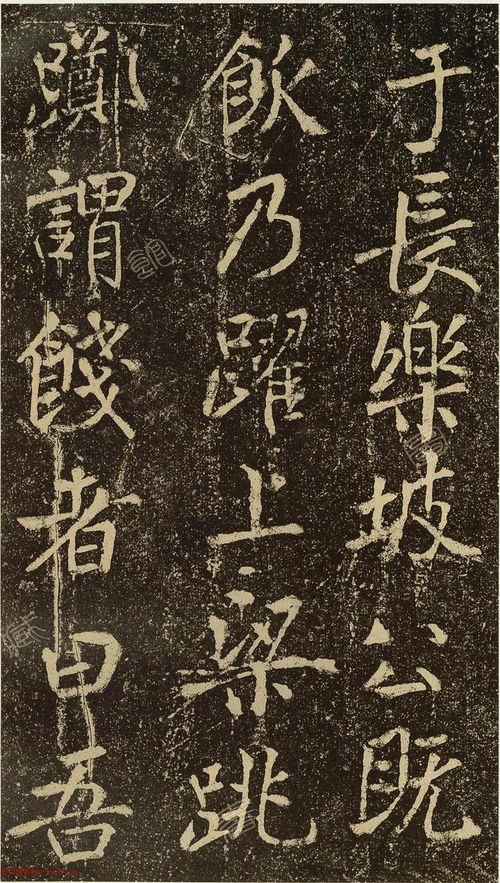 于長樂坡公既
飲乃躍上梁跳
躑謂餞者曰吾